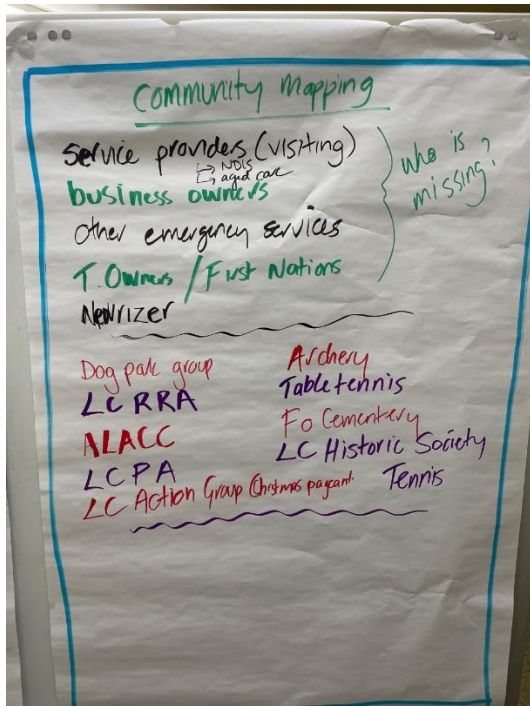 Community Mapping
Service providers (visiting)
↳ NDIS
↳ aged care
business owners
Other emergency services
T. Owners / First Nations
Newrizer
who is
missing?
Dog park group
LC RRA
ALACC
LCPA
LC Action Group Christmas pageant.
Archery
Table tennis
Fo Cementery
LC Historic Society
Tennis